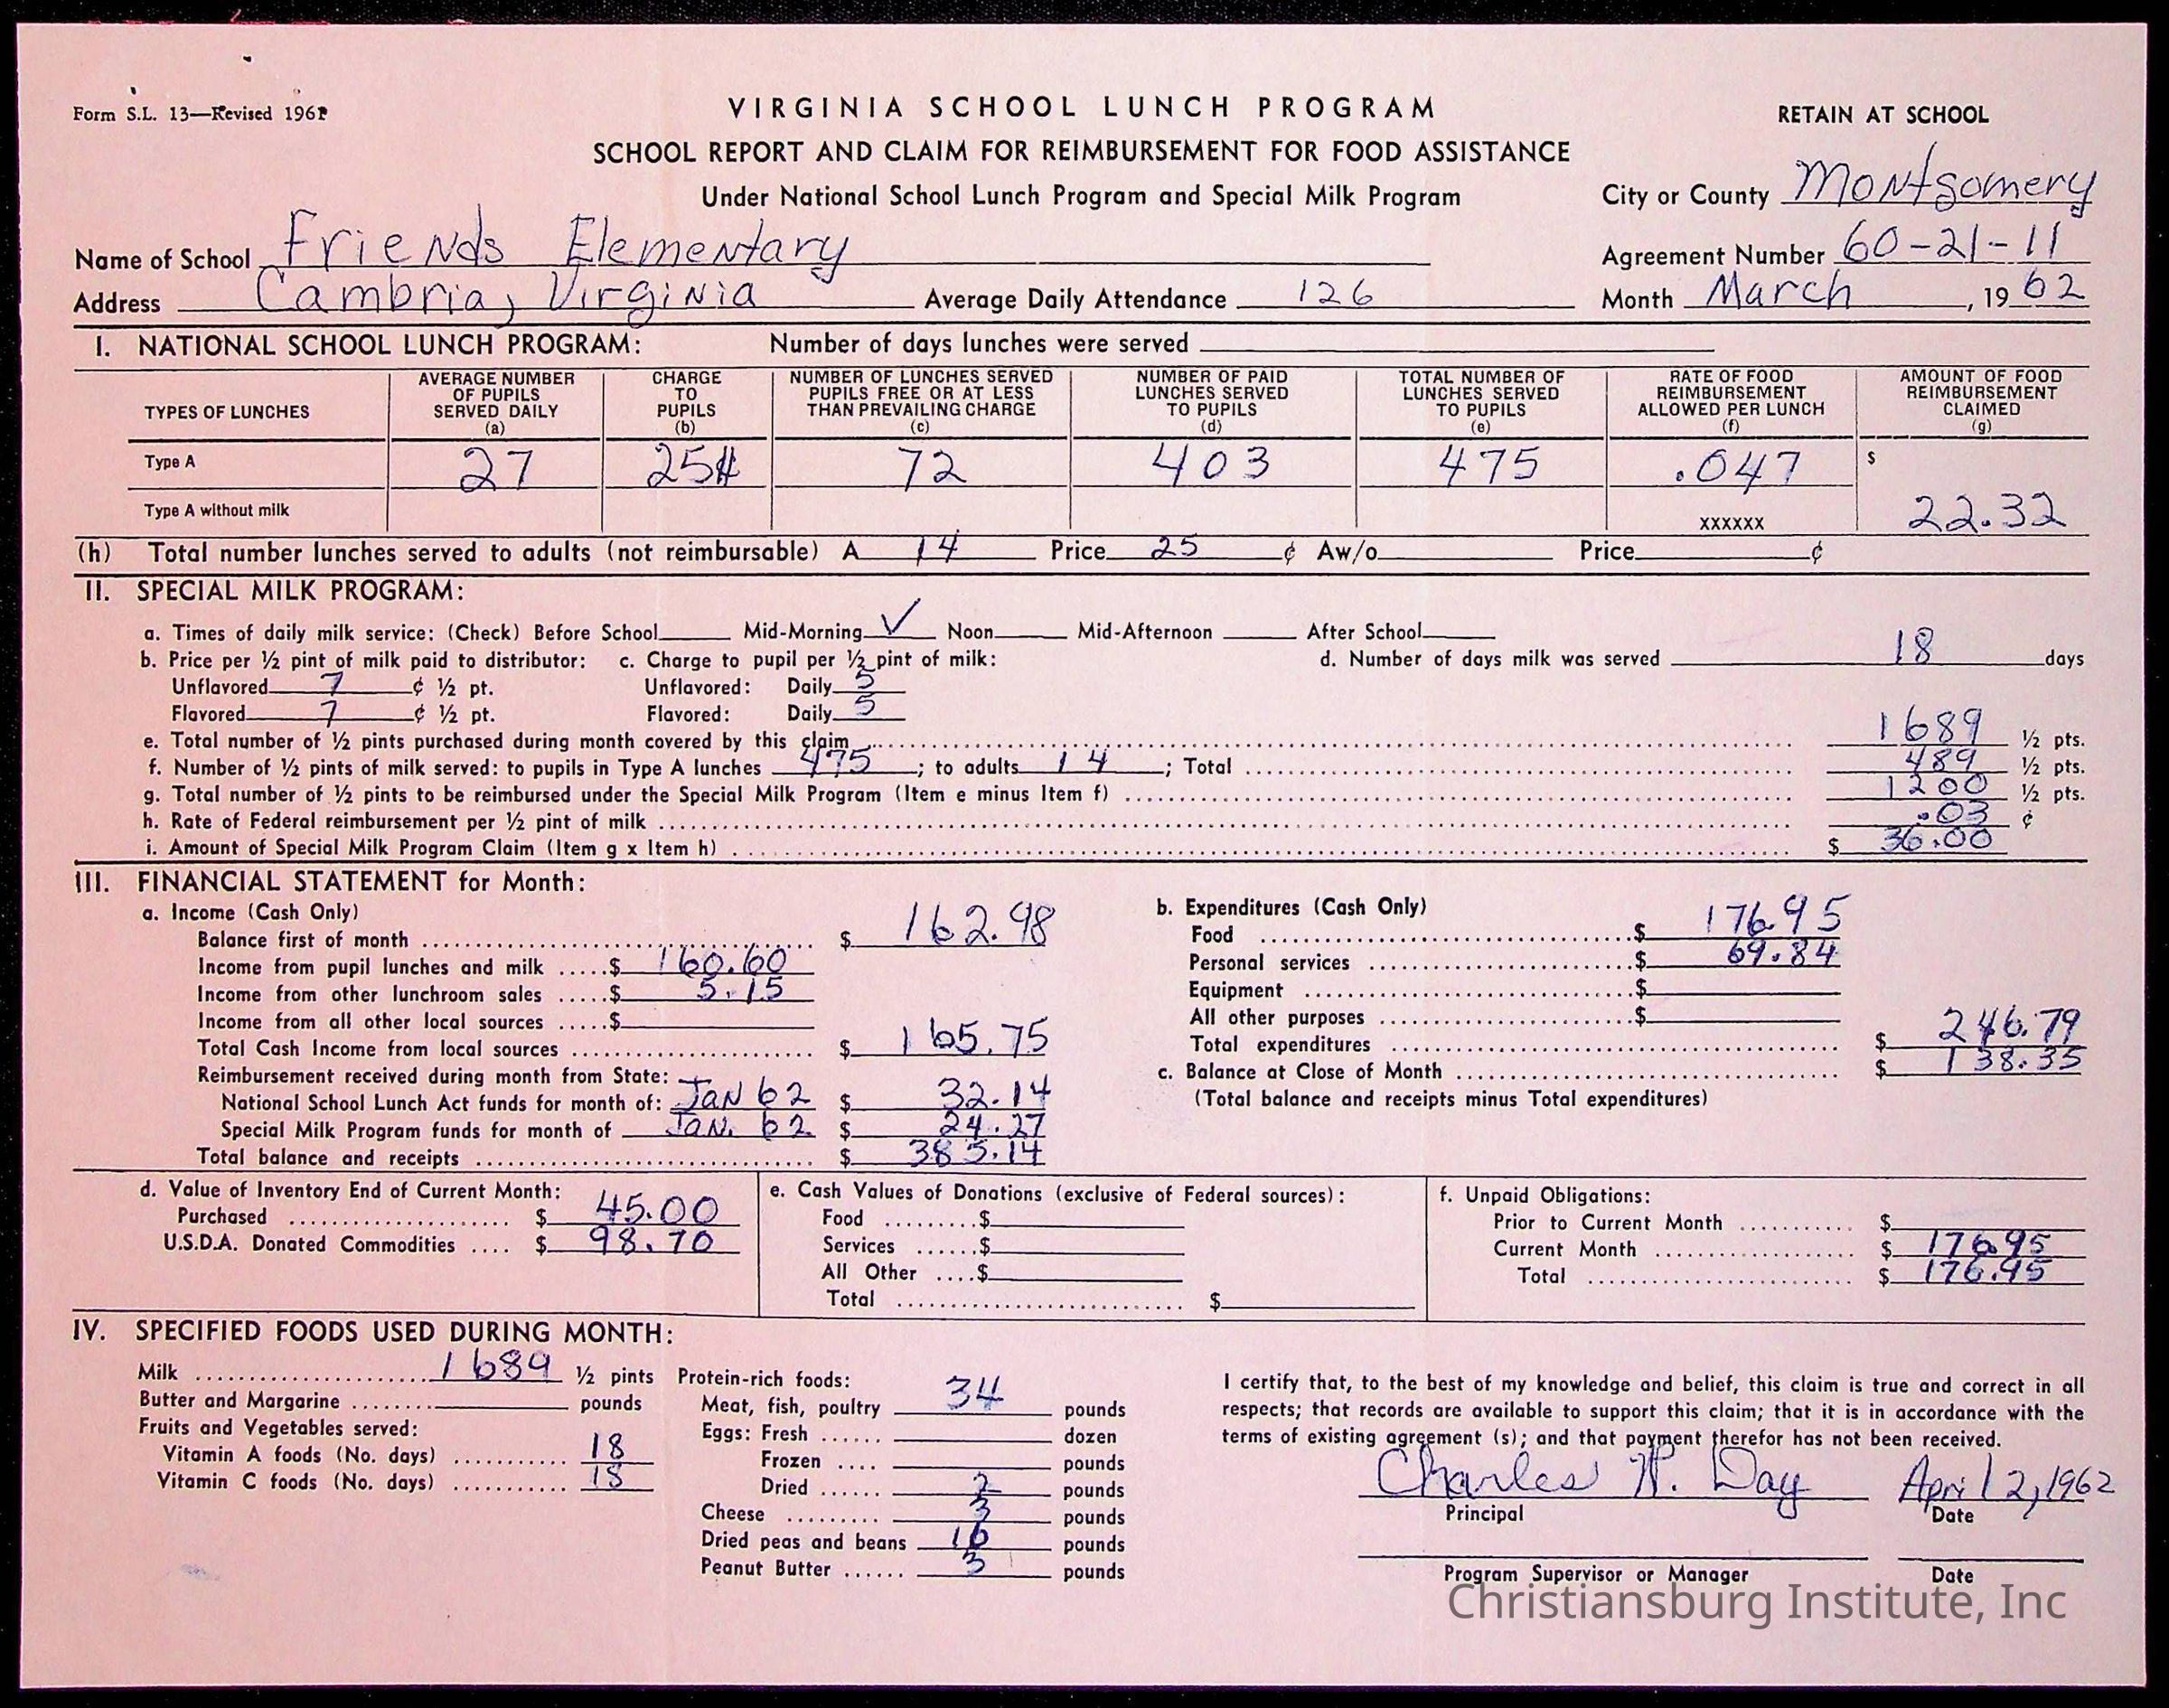 Form S.L. 13—Revised 1961
VIRGINIA SCHOOL LUNCH PROGRAM
RETAIN AT SCHOOL
SCHOOL REPORT AND CLAIM FOR REIMBURSEMENT FOR FOOD ASSISTANCE
Under National School Lunch Program and Special Milk Program
City or County Montgomery
Name of School Friends Elementary
Agreement Number 60-21-11
Address Cambria, Virginia Average Daily Attendance 126 Month March, 19 62
I. NATIONAL SCHOOL LUNCH PROGRAM: Number of days lunches were served
TYPES OF LUNCHES
AVERAGE NUMBER OF PUPILS SERVED DAILY (a)
CHARGE TO PUPILS (b)
NUMBER OF LUNCHES SERVED PUPILS FREE OR AT LESS THAN PREVAILING CHARGE (c)
NUMBER OF PAID LUNCHES SERVED TO PUPILS (d)
TOTAL NUMBER OF LUNCHES SERVED TO PUPILS (e)
RATE OF FOOD REIMBURSEMENT ALLOWED PER LUNCH (f)
AMOUNT OF FOOD REIMBURSEMENT CLAIMED (g)
Type A 27 25¢ 72 403 475 .047 $
Type A without milk XXXXXX 22.32
(h) Total number lunches served to adults (not reimbursable) A 14 Price 25 ¢ Aw/o Price ¢
II. SPECIAL MILK PROGRAM:
a. Times of daily milk service: (Check) Before School Mid-Morning ✓ Noon Mid-Afternoon After School
b. Price per ½ pint of milk paid to distributor: c. Charge to pupil per ½ pint of milk: d. Number of days milk was served 18 days
Unflavored 7 ¢ ½ pt. Unflavored: Daily 5
Flavored 7 ¢ ½ pt. Flavored: Daily 5
e. Total number of ½ pints purchased during month covered by this claim 1689 ½ pts.
f. Number of ½ pints of milk served: to pupils in Type A lunches 475; to adults 14; Total 489 ½ pts.
g. Total number of ½ pints to be reimbursed under the Special Milk Program (Item e minus Item f) 1200 ½ pts.
h. Rate of Federal reimbursement per ½ pint of milk .03 ¢
i. Amount of Special Milk Program Claim (Item g x Item h) $ 36.00
III. FINANCIAL STATEMENT for Month:
a. Income (Cash Only)
Balance first of month $ 162.98
Income from pupil lunches and milk $ 160.60
Income from other lunchroom sales $ 5.15
Income from all other local sources $
Total Cash Income from local sources $ 165.75
Reimbursement received during month from State:
National School Lunch Act funds for month of: Jan 62 $ 32.14
Special Milk Program funds for month of Jan. 62 $ 24.27
Total balance and receipts $ 385.14
b. Expenditures (Cash Only)
Food $ 176.95
Personal services $ 69.84
Equipment $
All other purposes $
Total expenditures $ 246.79
c. Balance at Close of Month $ 138.35
(Total balance and receipts minus Total expenditures)
d. Value of Inventory End of Current Month:
Purchased $ 45.00
U.S.D.A. Donated Commodities $ 98.70
e. Cash Values of Donations (exclusive of Federal sources):
Food $
Services $
All Other $
Total $
f. Unpaid Obligations:
Prior to Current Month $
Current Month $ 176.95
Total $ 176.95
IV. SPECIFIED FOODS USED DURING MONTH:
Milk 1689 ½ pints
Butter and Margarine pounds
Fruits and Vegetables served:
Vitamin A foods (No. days) 18
Vitamin C foods (No. days) 18
Protein-rich foods:
Meat, fish, poultry 34 pounds
Eggs: Fresh dozen
Frozen pounds
Dried 2 pounds
Cheese 3 pounds
Dried peas and beans 16 pounds
Peanut Butter 3 pounds
I certify that, to the best of my knowledge and belief, this claim is true and correct in all
respects; that records are available to support this claim; that it is in accordance with the
terms of existing agreement (s); and that payment therefor has not been received.
Charles W. Day April 2, 1962
Principal Date
Program Supervisor or Manager Date
Christiansburg Institute, Inc